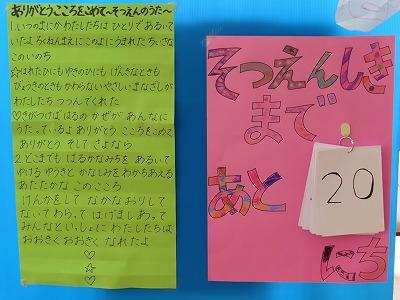 ありがとうこころをこめて〜そつえんのうた〜
1.いつのまにかわたしたちは ひとりであるいて
いたよ ろくねんまえにこのよにうまれた ちいさな
このいのち
☆はれたひにもゆきのひにも げんきなときも
びょうきのときも かわらないやさしいまなざしが
わたしたち つつんでくれた
♡きがつけば はるの かぜが あんなに
うたっているよ ありがとう こころをこめて
ありがとう そして さよなら
2.どこまでも はるかなみちを あるいて
ゆける ゆうきと かなしみをわかちあえる
あたたかな このこころ
けんかをして なかなおりして
ないて わらって はげましあって
みんなといっしょに わたしたちは
おおきく おおきく なれたよ
♡
☆
♡
そつえんしき
まで
あと
20
にち